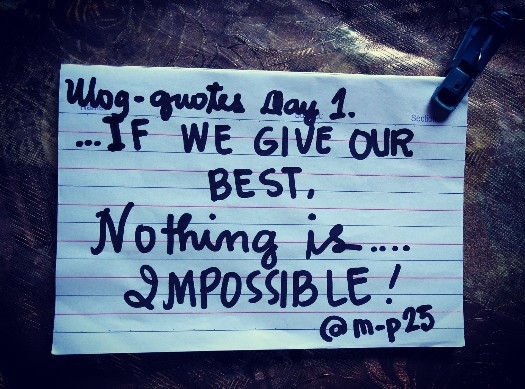 Ulog-quotes Day 1.
...IF WE GIVE OUR
BEST,
Nothing is....
IMPOSSIBLE!
@m-p25